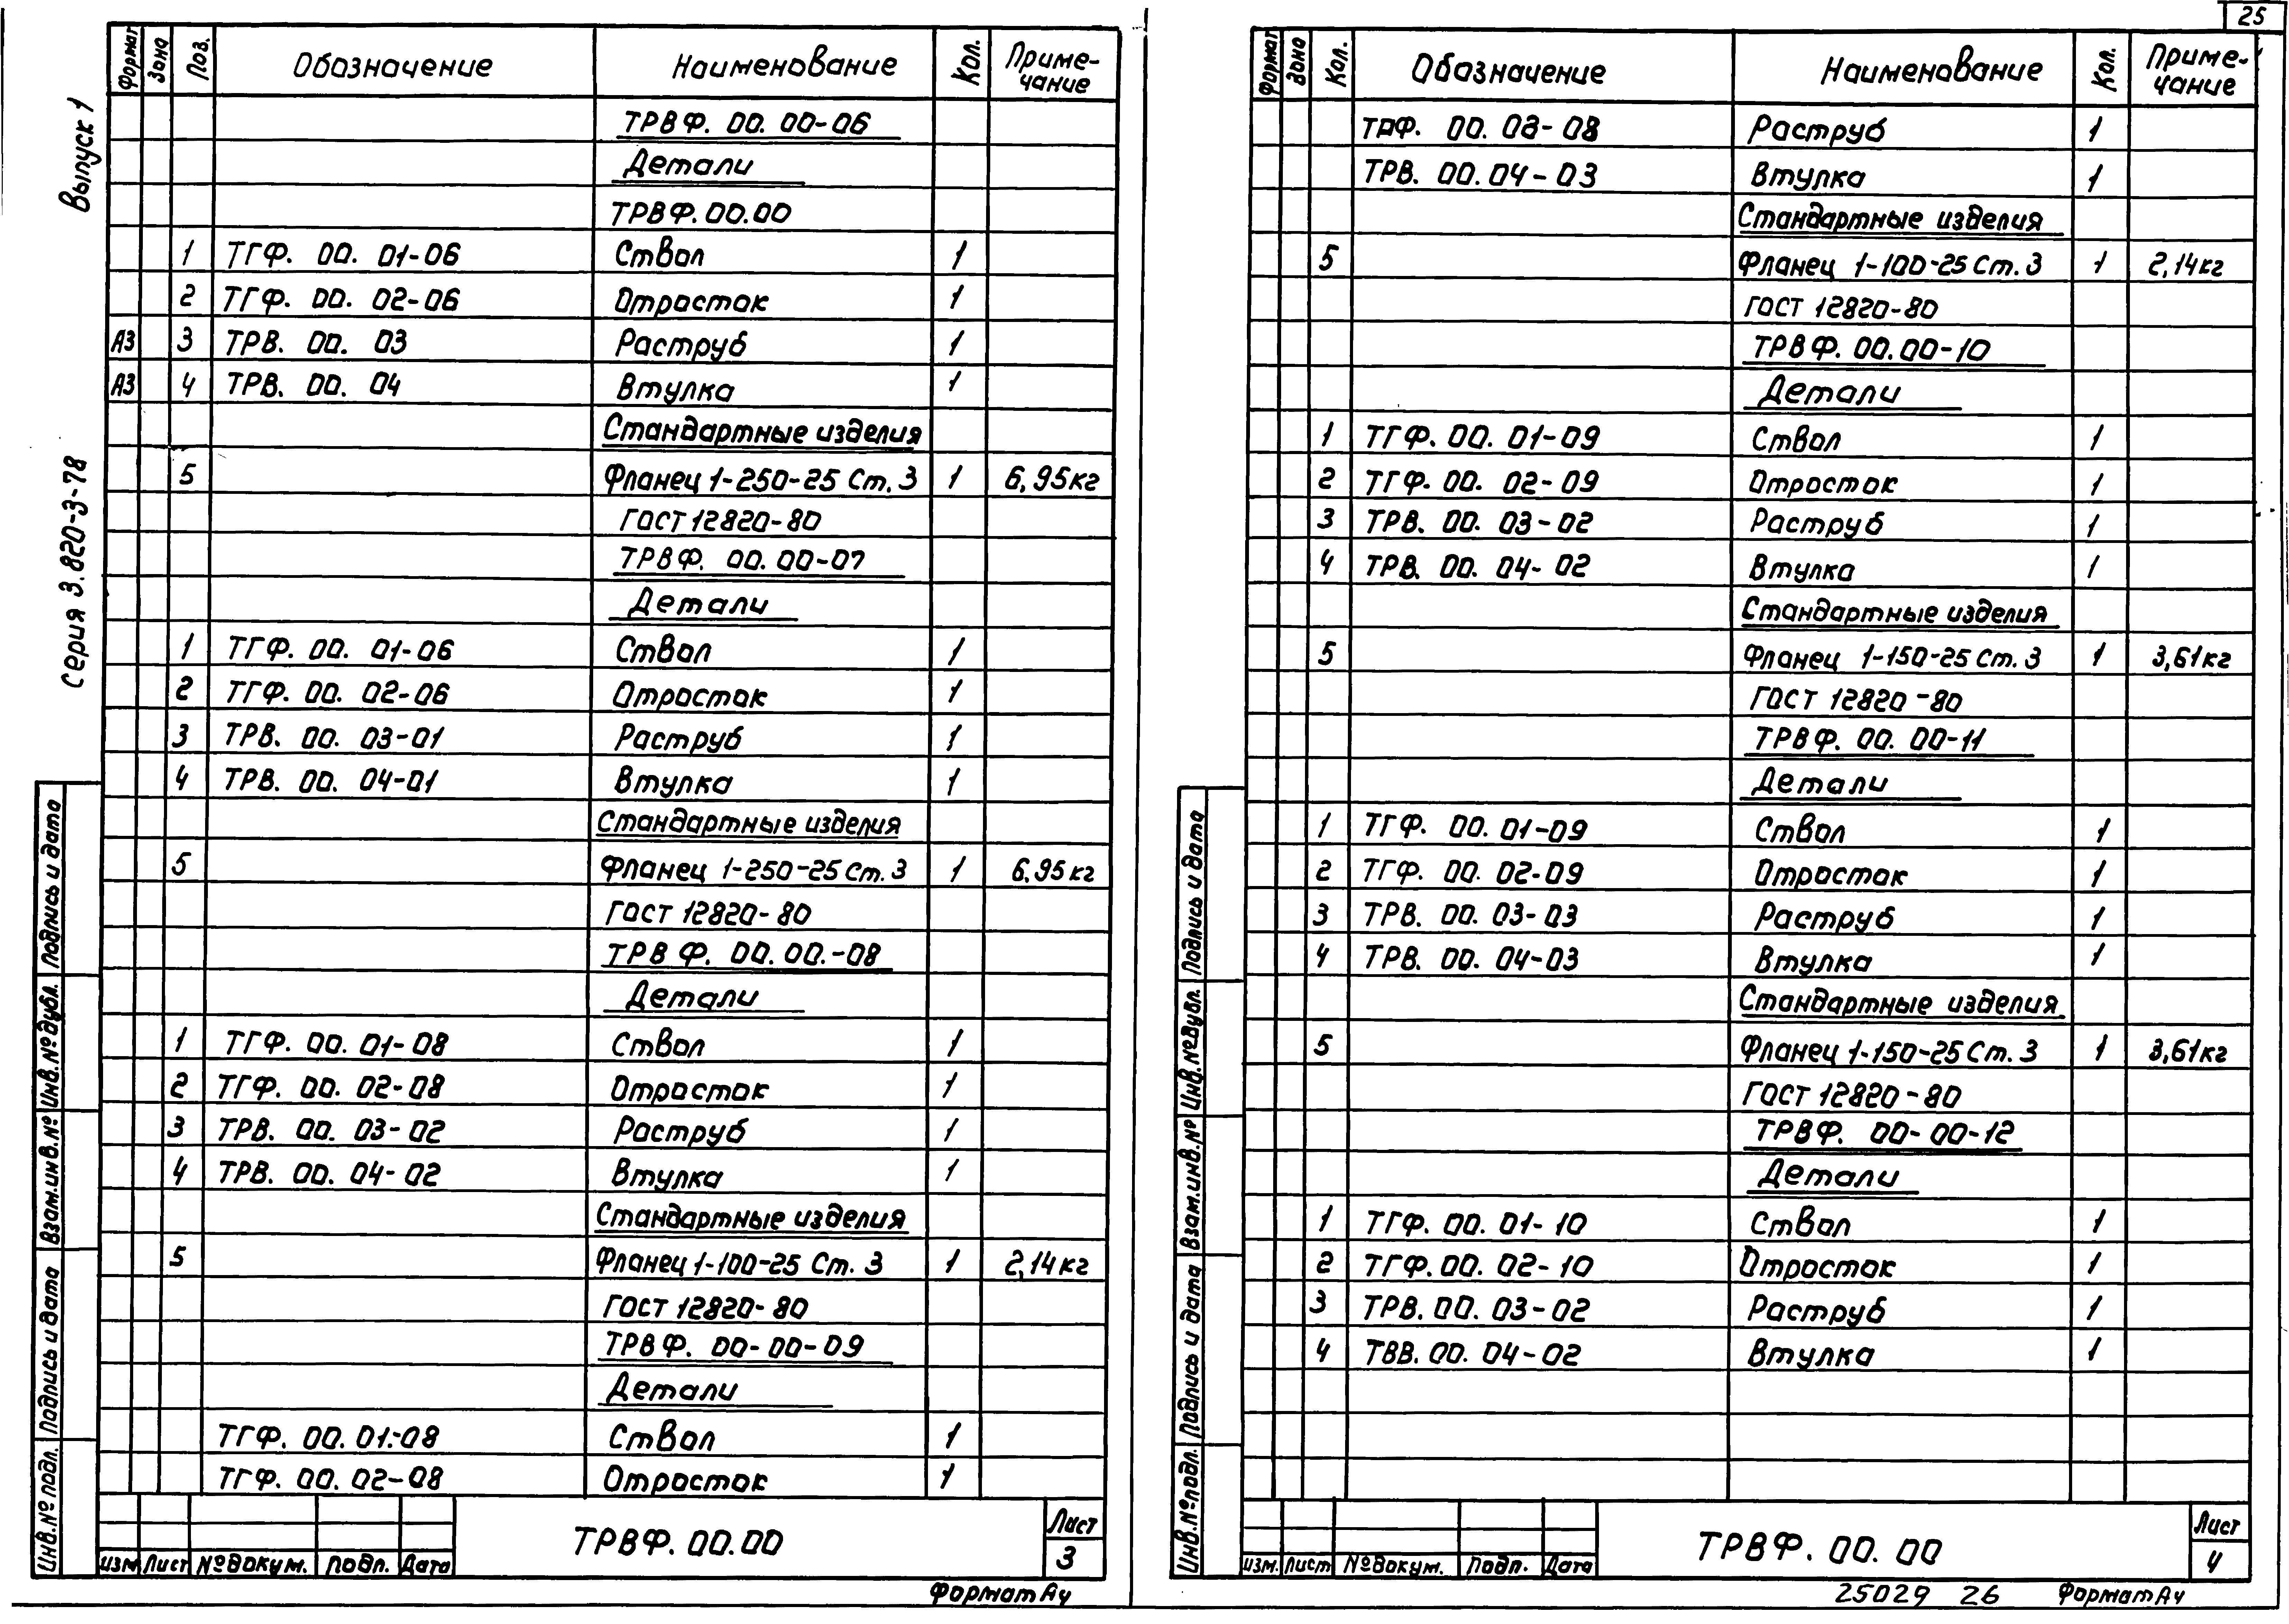 25
Выпуск 1
серия 3.820-3-78
Формат Зона Поз. Обозначение Наименование Кол. Приме-
чание
ТРВФ. 00. 00-06
Детали
ТРВФ. 00.00
1 ТГФ. 00. 01-06 Ствол 1
2 ТГФ. 00. 02-06 Отросток 1
А3 3 ТРВ. 00. 03 Раструб 1
А3 4 ТРВ. 00. 04 Втулка 1
Стандартные изделия
5 Фланец 1-250-25 Ст. 3 1 6,95кг
ГОСТ 12820-80
ТРВФ. 00.00-07
Детали
1 ТГФ. 00. 01-06 Ствол 1
2 ТГФ. 00. 02-06 Отросток 1
3 ТРВ. 00. 03-01 Раструб 1
4 ТРВ. 00. 04-01 Втулка 1
Стандартные изделия
5 Фланец 1-250-25 Ст. 3 1 6,95кг
ГОСТ 12820-80
ТРВФ. 00.00.-08
Детали
1 ТГФ. 00. 01-08 Ствол 1
2 ТГФ. 00. 02-08 Отросток 1
3 ТРВ. 00. 03-02 Раструб 1
4 ТРВ. 00. 04-02 Втулка 1
Стандартные изделия
5 Фланец 1-100-25 Ст. 3 1 2,14кг
ГОСТ 12820-80
ТРВФ. 00-00-09
Детали
ТГФ. 00.01-08 Ствол 1
ТГФ. 00. 02-08 Отросток 1
Инв.№ подл. Подпись и дата Взам.инв.№ Инв.№ дубл. Подпись и дата
изм Лист №докум. подп. Дата
ТРВФ. 00.00
Лист
3
Формат А4
Формат зона Кол. Обозначение Наименование Кол. Приме-
чание
00. 03-08 Раструб 1
ТРВ. 00.04-03 Втулка 1
Стандартные изделия
5 Фланец 1-100-25 Ст. 3 1 2,14кг
ГОСТ 12820-80
ТРВФ. 00.00-10
Детали
1 ТГФ. 00. 01-09 Ствол 1
2 ТГФ. 00. 02-09 Отросток 1
3 ТРВ. 00. 03-02 Раструб 1
4 ТРВ. 00. 04-02 Втулка 1
Стандартные изделия
5 Фланец 1-150-25 Ст. 3 1 3,61кг
ГОСТ 12820-80
ТРВФ. 00. 00-11
Детали
1 ТГФ. 00. 01-09 Ствол 1
2 ТГФ. 00. 02-09 Отросток 1
3 ТРВ. 00. 03-03 Раструб 1
4 ТРВ. 00. 04-03 Втулка 1
Стандартные изделия
5 Фланец 1-150-25 Ст. 3 1 3,61кг
ГОСТ 12820-80
ТРВФ. 00-00-12
Детали
1 ТГФ. 00. 01-10 Ствол 1
2 ТГФ. 00. 02-10 Отросток 1
3 ТРВ. 00. 03-02 Раструб 1
4 ТВВ. 00. 04-02 Втулка 1
Инв.№подл. Подпись и дата Взам.инв.№ Инв.№дубл. Подпись и дата
изм. Лист №докум. подп. Дата
ТРВФ. 00. 00
Лист
4
25029 26 Формат А4